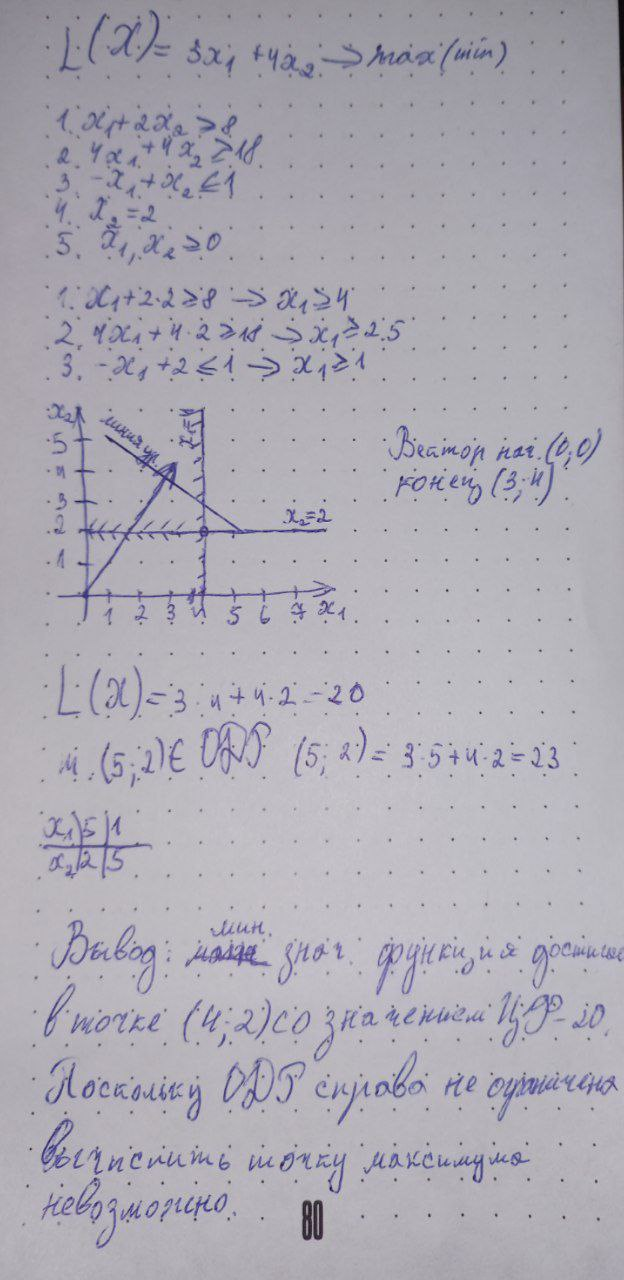 L(X) = 3x₁ + 4x₂ → max (min)
1. x₁ + 2x₂ ≥ 8
2. 4x₁ + 4x₂ ≥ 18
3. -x₁ + x₂ ≤ 1
4. x₂ = 2
5. x₁, x₂ ≥ 0
1. x₁ + 2·2 ≥ 8 → x₁ ≥ 4
2. 4x₁ + 4·2 ≥ 18 → x₁ ≥ 2.5
3. -x₁ + 2 ≤ 1 → x₁ ≥ 1
x₂
линия ур.
x₁=4
5
4
3
2
1
x₂=2
1 2 3 4 5 6 7 x₁
Вектор нач. (0;0)
конец (3;4)
L(X) = 3·4 + 4·2 = 20
т. (5;2) ∈ ОДР (5;2) = 3·5 + 4·2 = 23
x₁ | 5 | 1
x₂ | 2 | 5
мин.
Вывод: знач. функция достигае
в точке (4;2) со значением ЦФ - 20.
Поскольку ОДР справа не ограничена
вычислить точку максимума
невозможно.
80